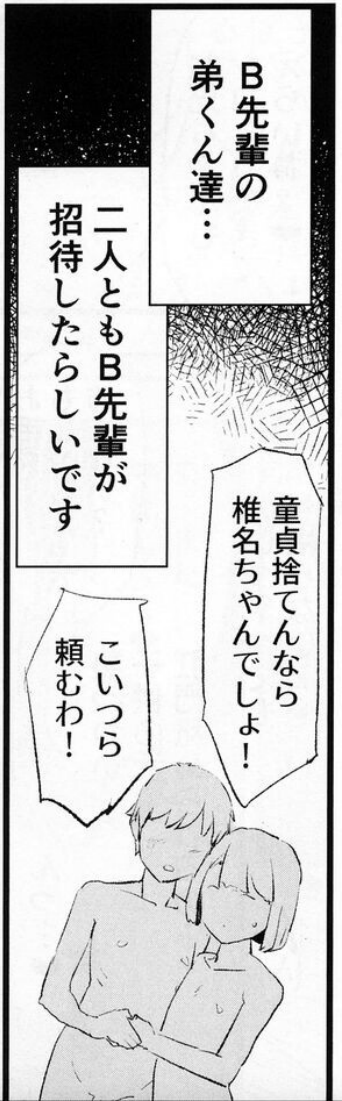 B先輩の
弟くん達…
二人ともB先輩が
招待したらしいです
童貞捨てんなら
椎名ちゃんでしょ！
こいつら
頼むわ！